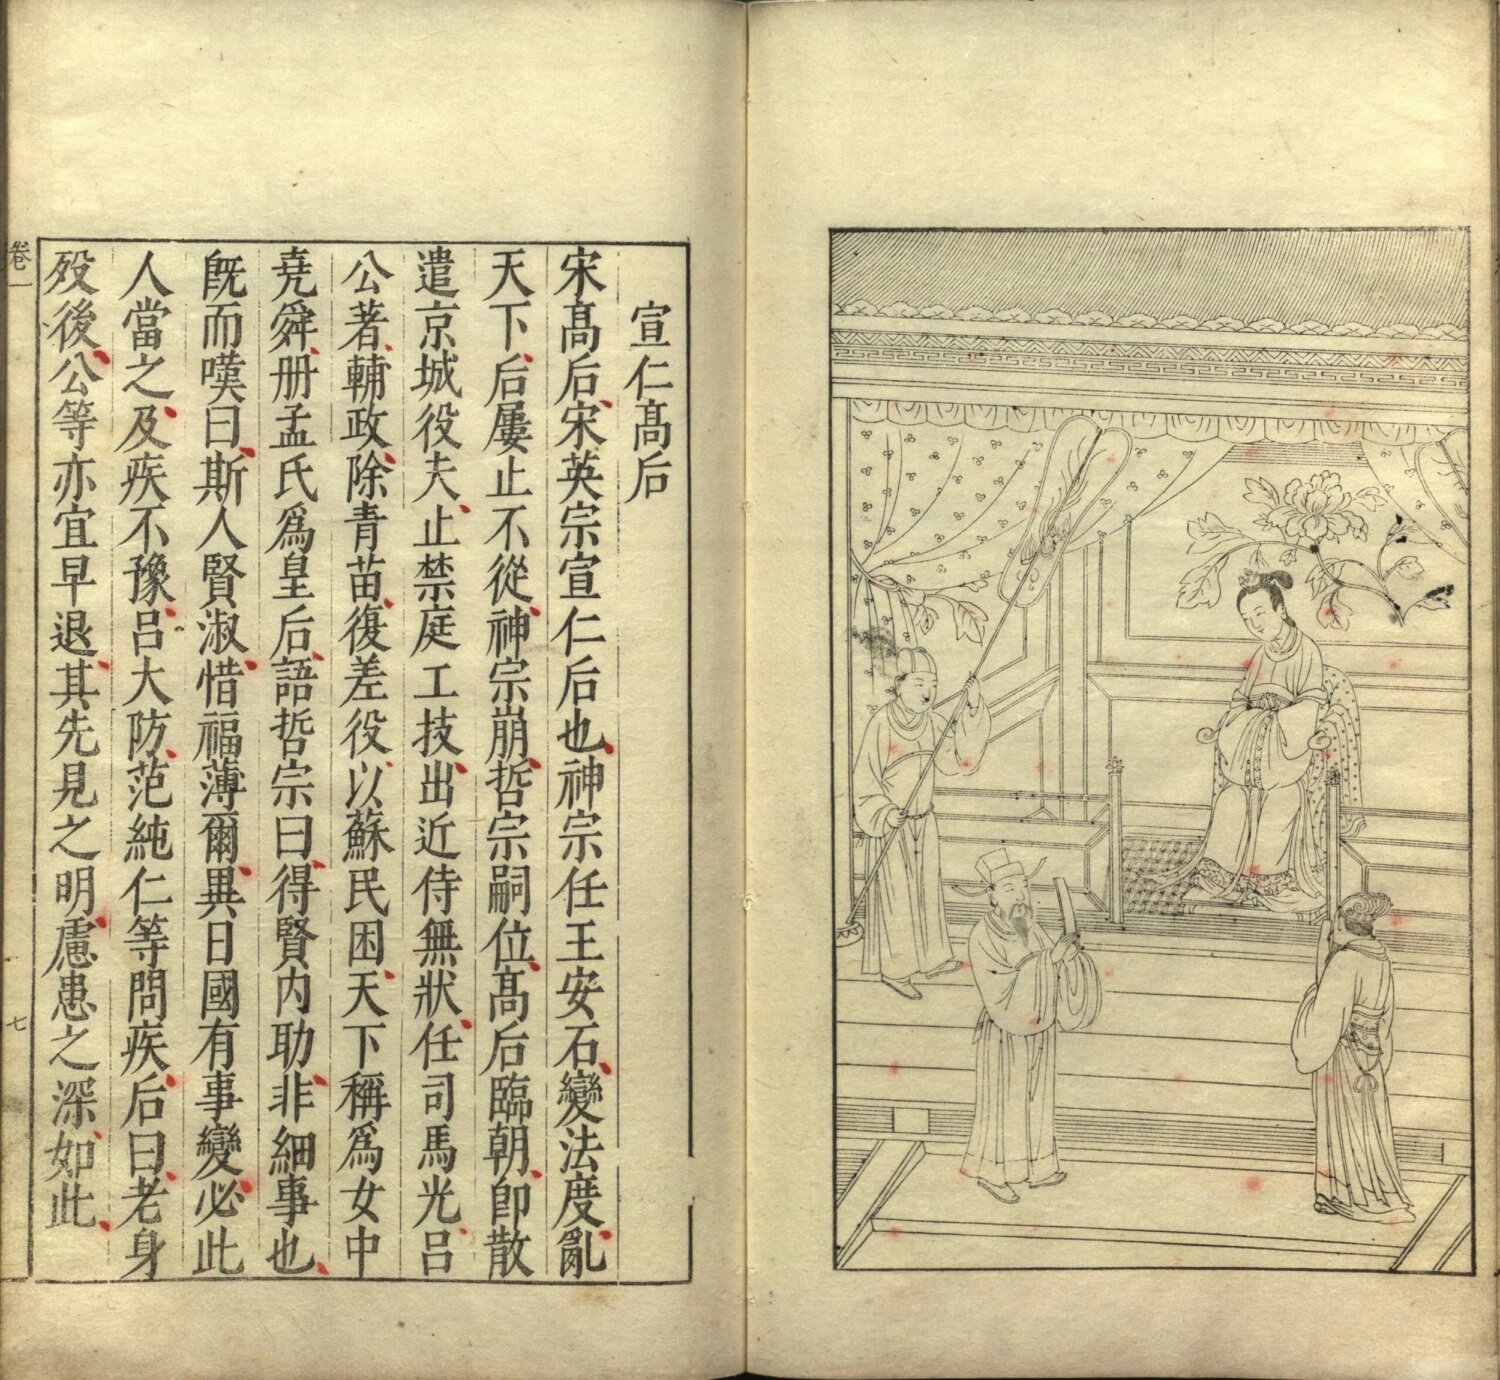 宣仁髙后
宋髙后宋英宗宣仁后也神宗任王安石變法度亂
天下后屢止不從神宗崩哲宗嗣位髙后臨朝卽散
遣京城役夫止禁庭工技出近侍無狀任司馬光呂
公著輔政除青苗復差役以蘇民困天下稱爲女中
堯舜册孟氏爲皇后語哲宗曰得賢内助非細事也
旣而嘆曰斯人賢淑惜福薄爾異日國有事變必此
人當之及疾不豫呂大防范純仁等問疾后曰老身
歿後公等亦宜早退其先見之明慮患之深如此
卷一
七